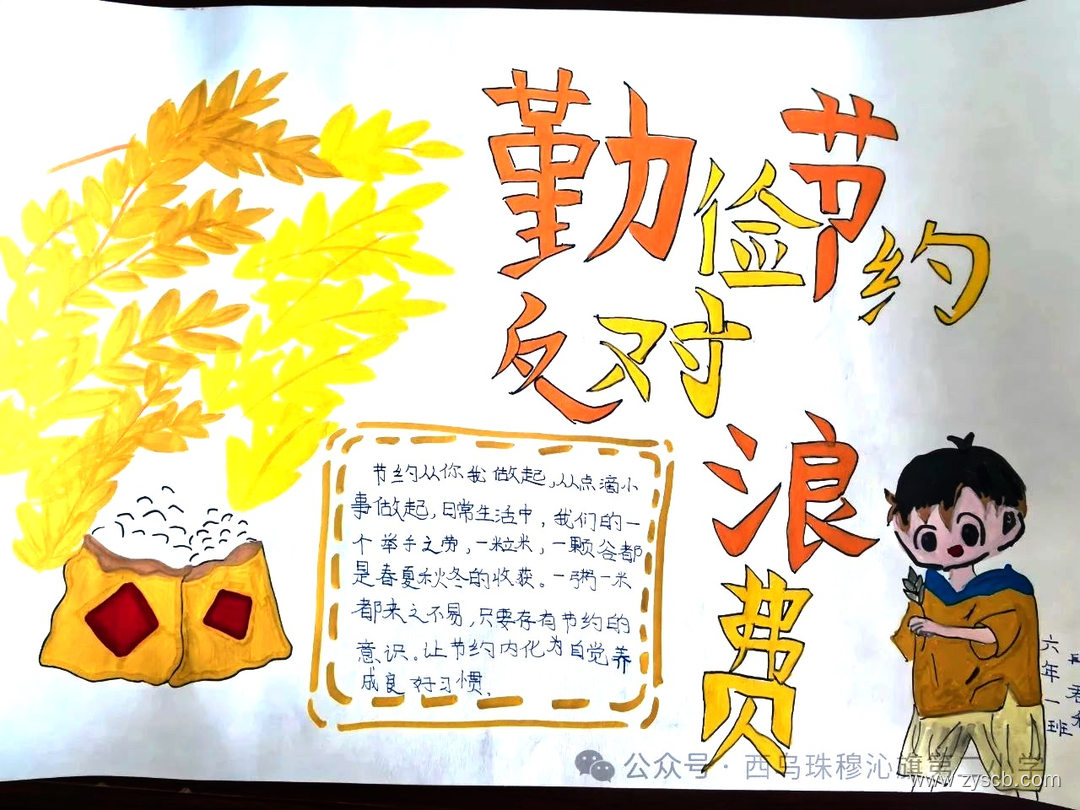 勤俭节约
反对
浪费
节约从你我做起,从点滴小
事做起,日常生活中,我们的一
个举手之劳,一粒米,一颗谷都
是春夏秋冬的收获。一粥一米
都来之不易,只要存有节约的
意识。让节约内化为自觉养
成良好习惯.
六年一班
公众号·西乌珠穆沁旗第一小学
www.zyscb.com